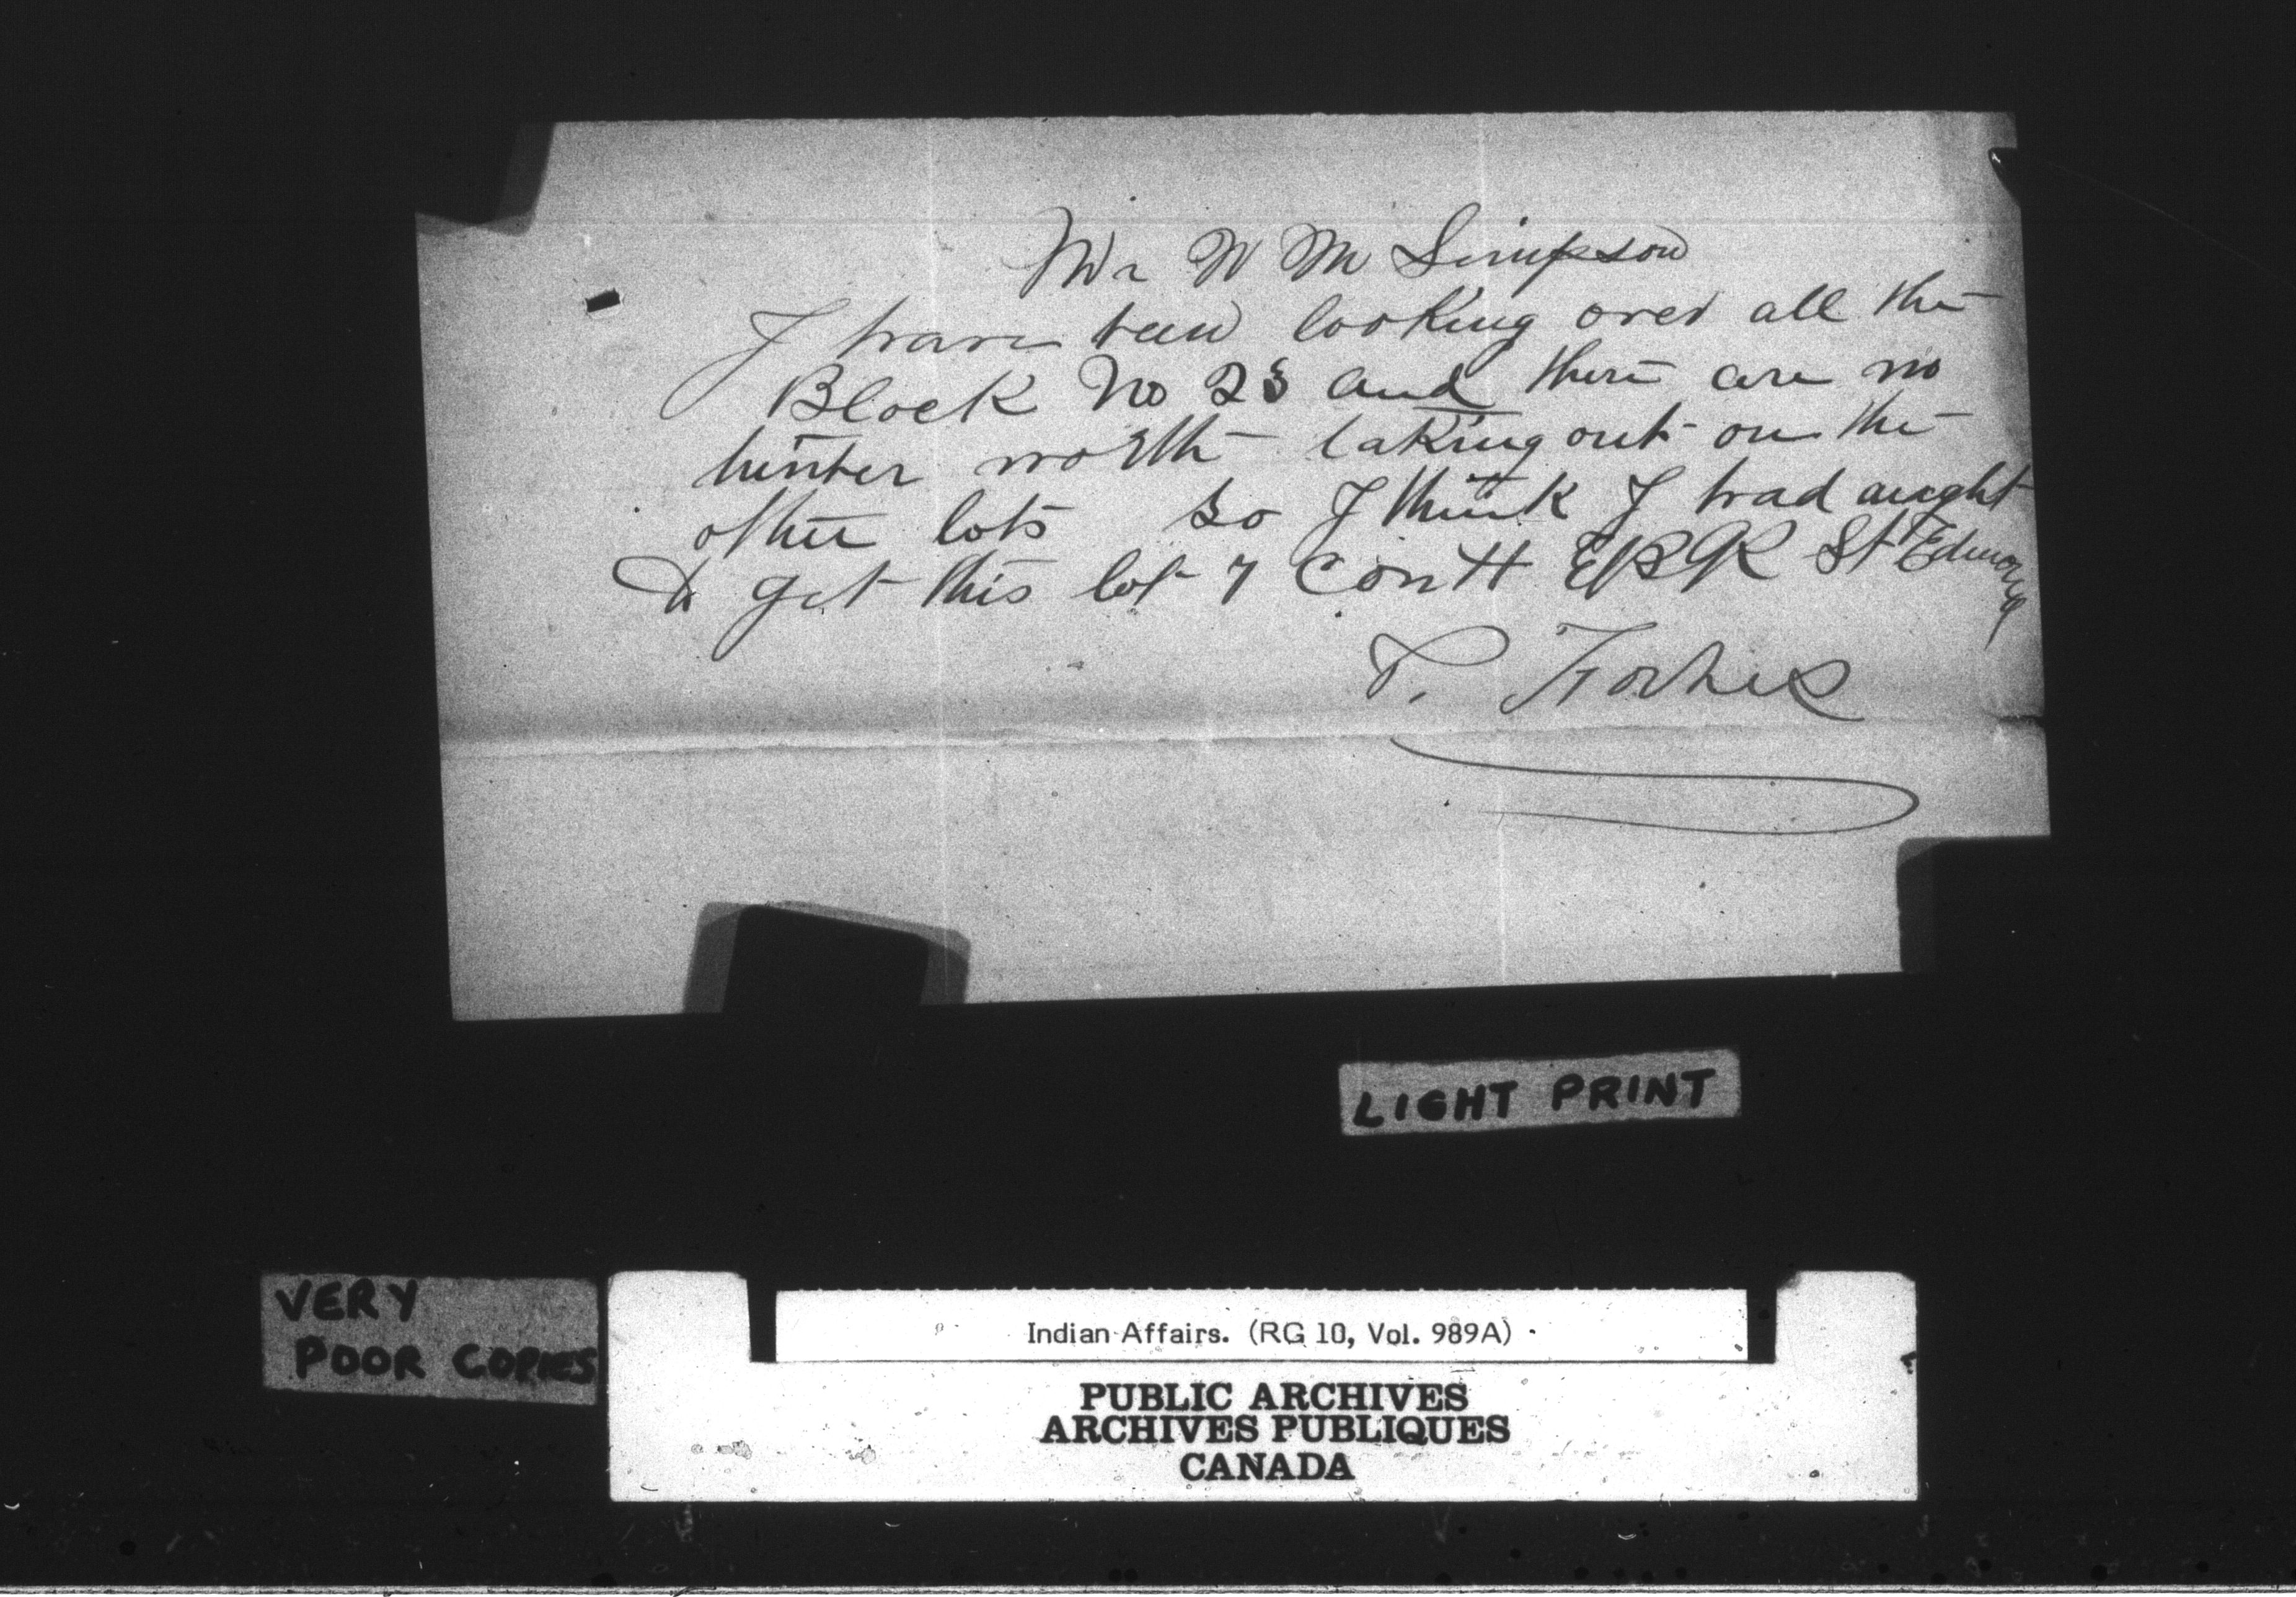 Mr W M Simpson
I have been looking over all the
Block No 28 and there are no
timber worth taking out on the
other lots so I think I had aught
to get this lot 7 Con 4 EBR St Edmond
P. Forbes
LIGHT PRINT
VERY
POOR COPIES
Indian Affairs. (RG 10, Vol. 989A)
PUBLIC ARCHIVES
ARCHIVES PUBLIQUES
CANADA